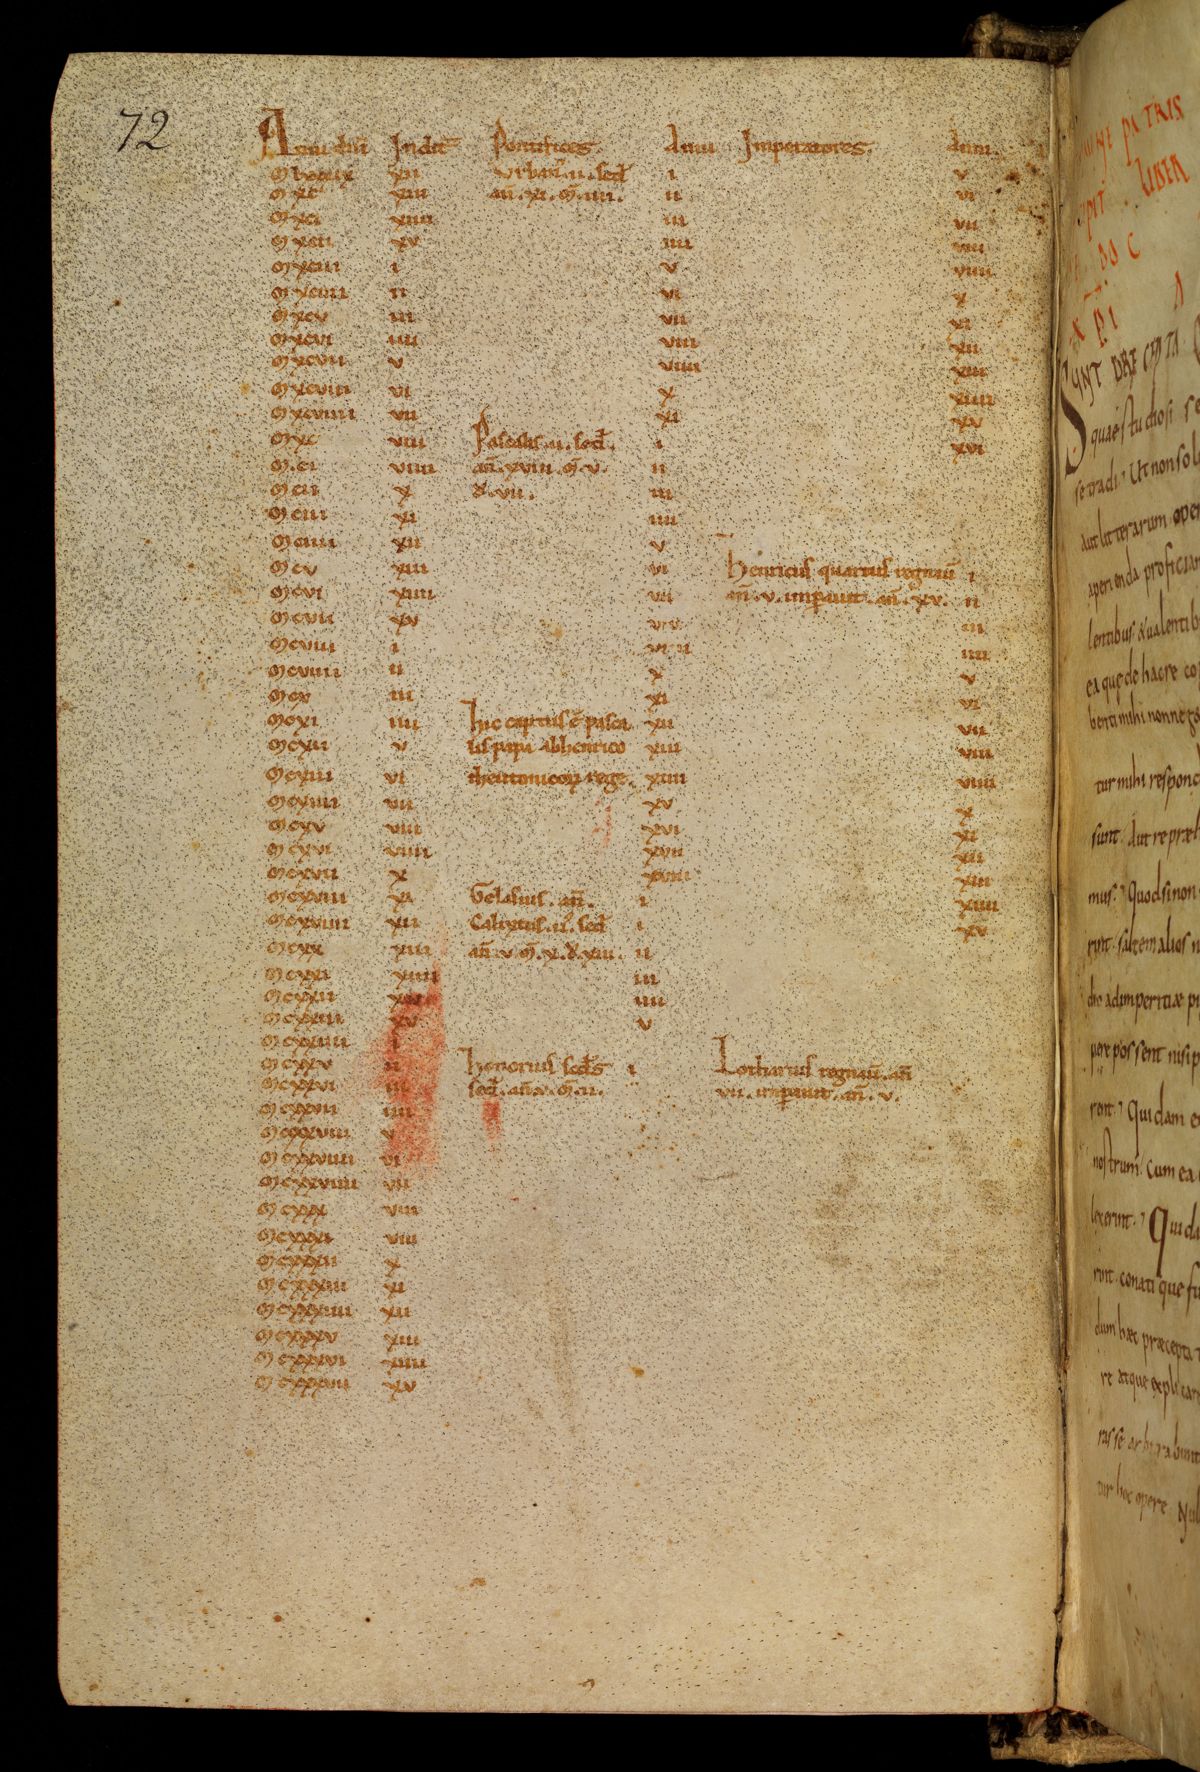 72
Anni dni Indic Pontifices. Anni Imperatores. Anni.
xii Urban. ii. sed i v
xc xiii an. xi. m. iiii. ii vi
xci xiiii iii vii
xcii xv iiii viii
xciii i v viiii
xciiii ii vi x
xcv iii vii xi
xcvi iiii viii xii
xcvii v viiii xiii
xcviii vi x xiiii
xcviiii vii xi xv
viii Pascalis. ii. sed. i xvi
m.ci viiii an. xviii. m. v. ii
mcii x d. vii. iii
mciii xi iiii
mciiii xii v
mcv xiii vi henricus quartus regnau i
mcvi xiiii vii an. v. imperauit. an. xv. ii
mcvii xv iii
mcviii i iiii
mcviiii ii x v
mcx iii xi vi
mcxi iiii hic captus e pasca xii vii
mcxii v lis papa ab henrico xiii viii
mcxiii vi theutonicor rege. xiiii viiii
mcxiiii vii xv x
mcxv viii xvi xi
mcxvi viiii xvii xii
mcxvii x xviii xiii
mcxviii xi Gelasius. an. i xiiii
mcxviiii xii Calixtus. ii. sed i xv
mcxx xiii an. v. m. x. d. xiii. ii
mcxxi xiiii iii
mcxxii iiii
mcxxiii xv v
mcxxiiii i
mcxxv ii honorius i Lotharius regnau. an
mcxxvi iii sed. an. v. m. ii. vii. imperauit. an. v.
mcxxvii iiii
mcxxviii v
mcxxviiii vi
mcxxviiii vii
mcxxx viii
mcxxxi viiii
mcxxxii x
mcxxxiii xi
mcxxxiiii xii
mcxxxv xiii
mcxxxvi xiiii
mcxxxvii xv
PATRIS
LIBER
SUNT PRECEPTA
quae studiosi
se tradi. Ut non solo
aut litterarum oper
aperienda proficiant
lentibus
ea que de hac re
benti mihi non nego
tur mihi respond
sunt. Aut re
mus. Quod si non
rint. saltem alios
dio ad imperitiae
pere possent nisi
rent. Quidam
nostrum. cum ea
lexerint. Quida
rint. conati que
dum haec praecepta
re atque explicare
tur hoc opere